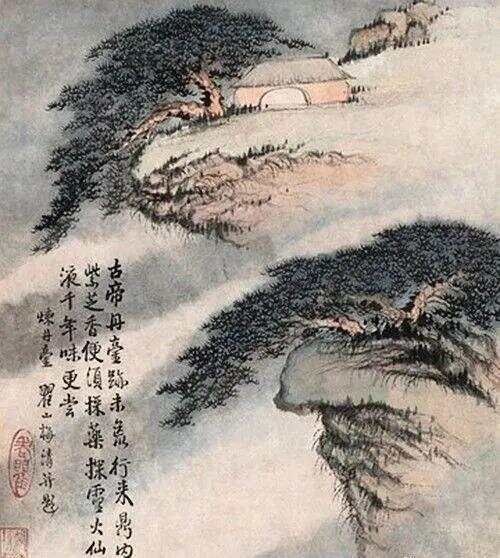 古帝丹臺跡未荒行来鼎内
紫芝香便須採藥探雲火仙
液千年味更尝
煉丹臺 瞿山梅清并題